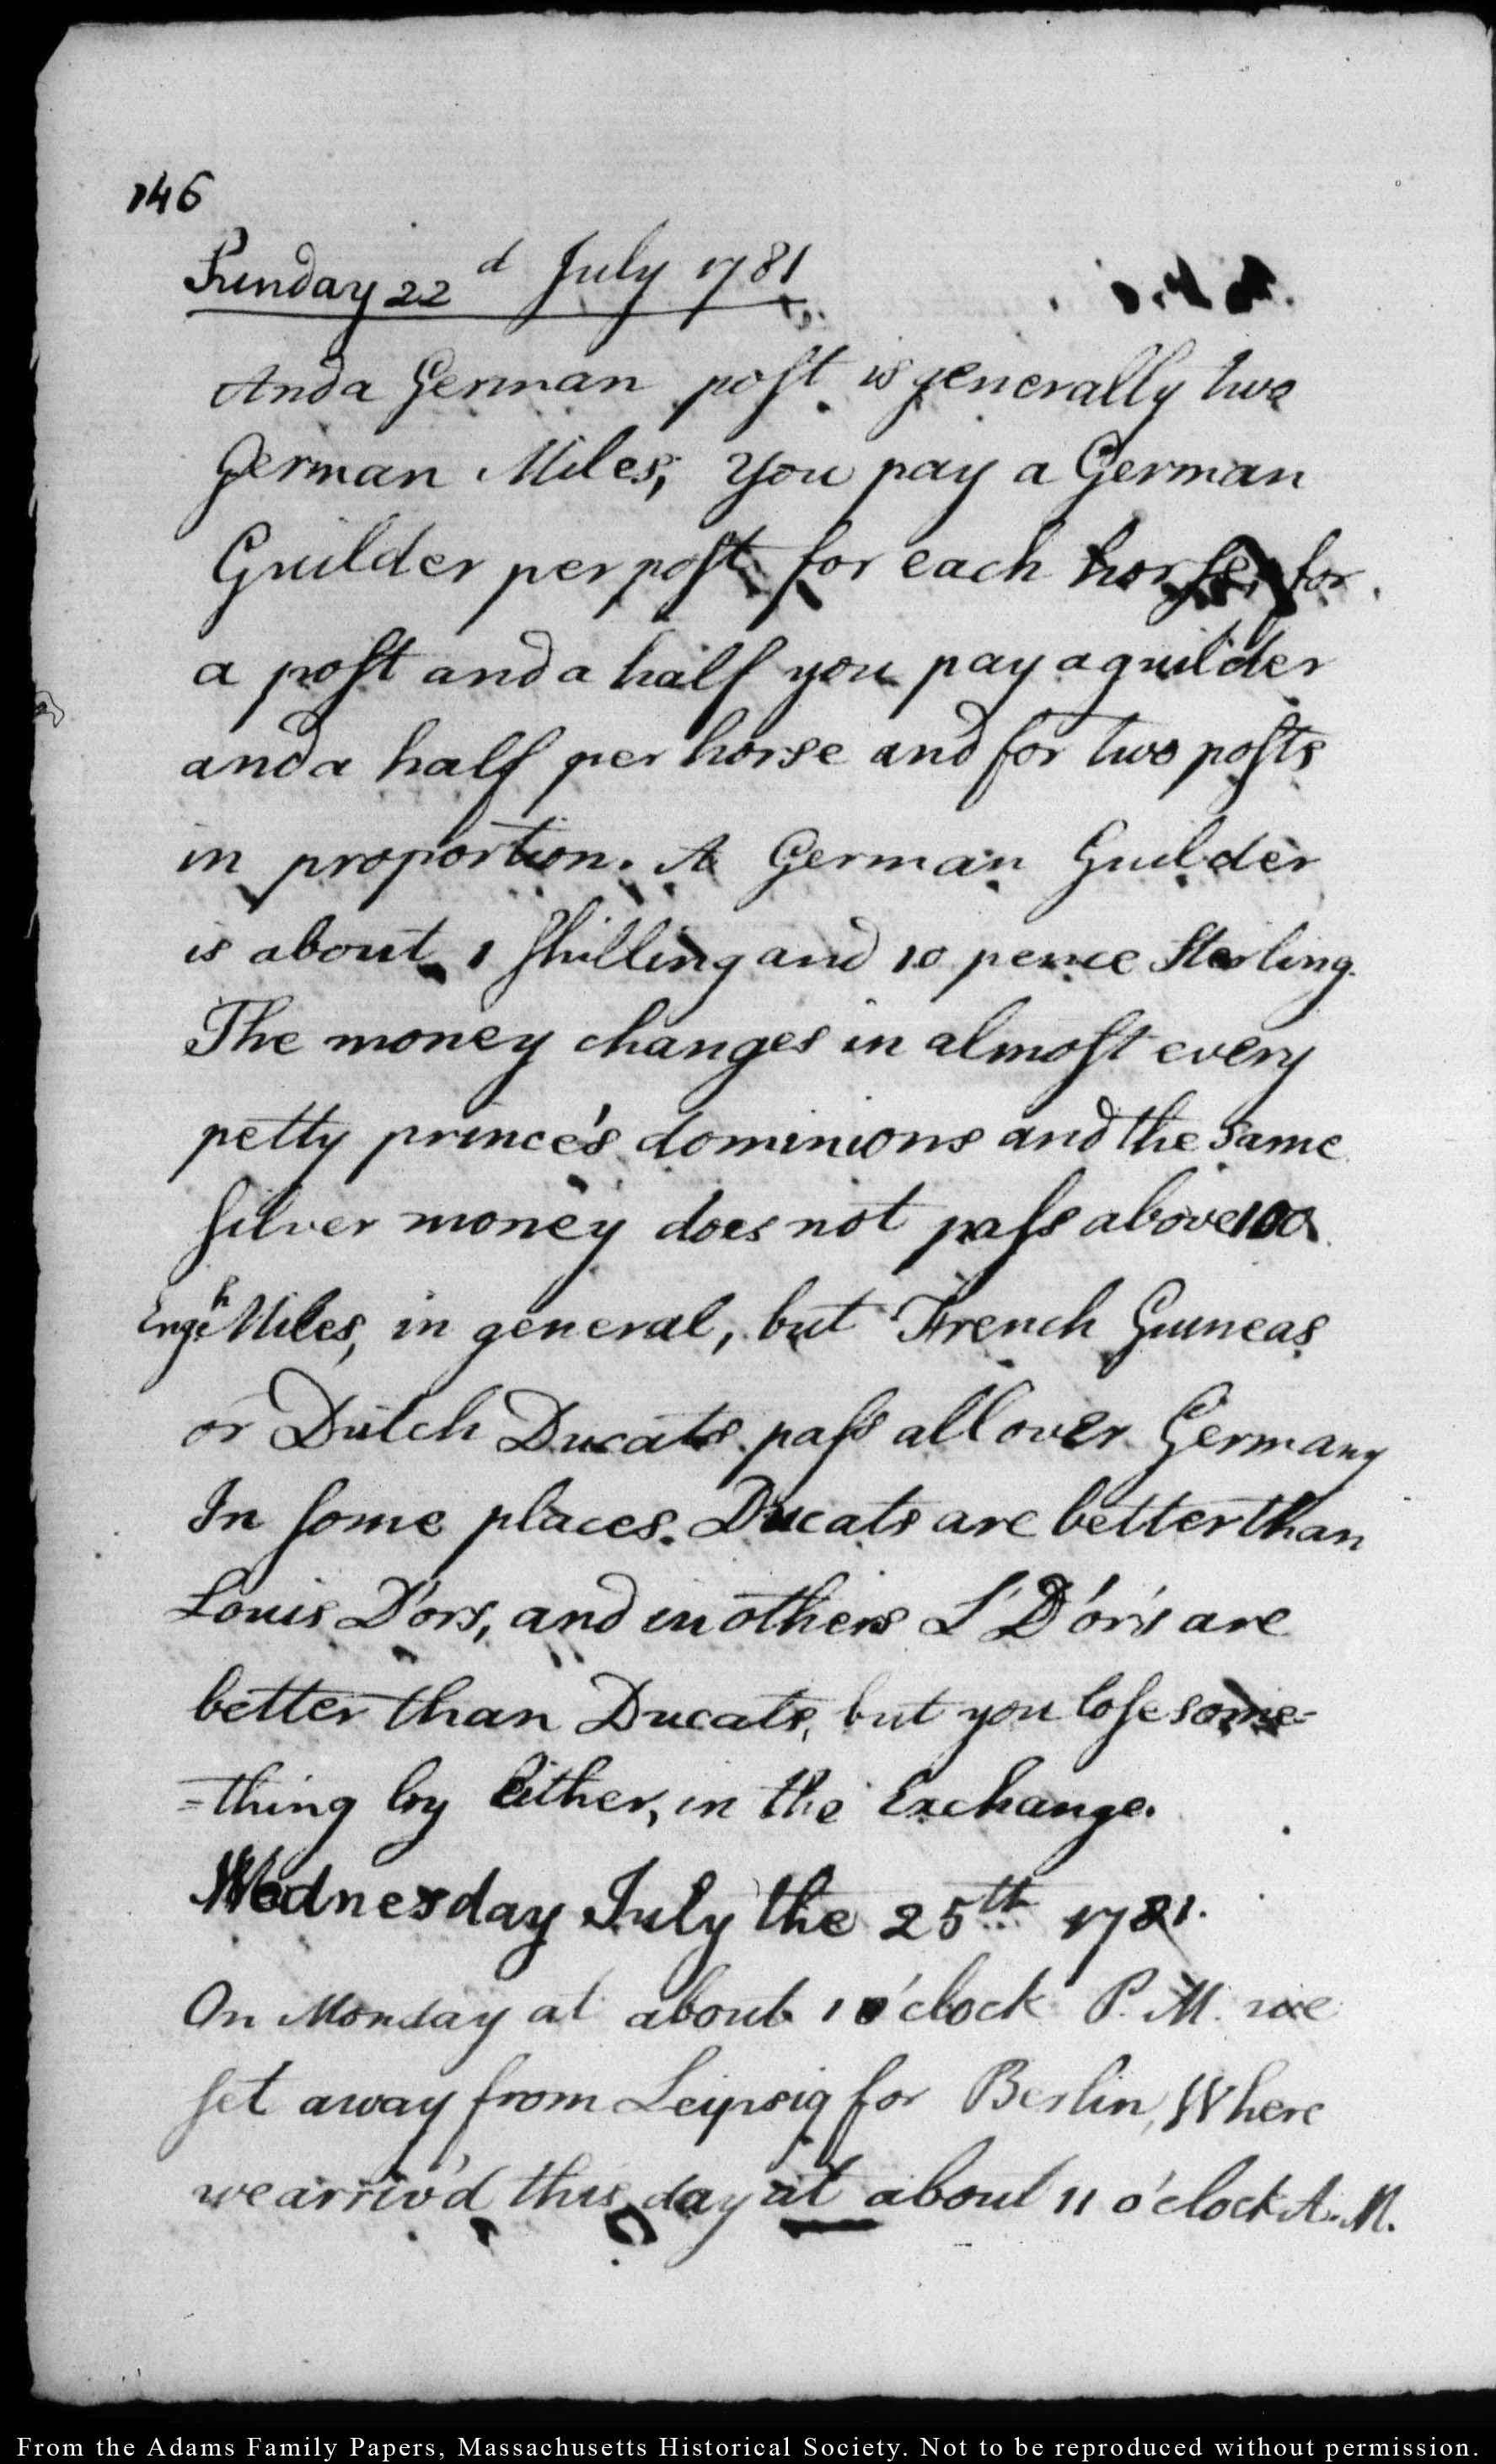 146
Sunday 22d July 1781
And a German post is generally two
German Miles, you pay a German
Guilder per post for each horse, for
a post and a half you pay a guilder
and a half per horse and for two posts
in proportion. A German Guilder
is about 1 shilling and 10 pence Sterling.
The money changes in almost every
petty prince's dominions and the same
silver money does not pass above 100
Engh Miles, in general, but French Guineas
or Dutch Ducats pass all over Germany
In some places. Ducats are better than
Louis D'ors, and in others L' D'or's are
better than Ducats, but you lose some=
=thing by either, in the Exchange.
Wednesday July the 25th 1781.
On Monday at about 1 o'clock P. M. we
set away from Leipsig for Berlin, Where
we arriv'd this day at about 11 o'clock A. M.
From the Adams Family Papers, Massachusetts Historical Society. Not to be reproduced without permission.